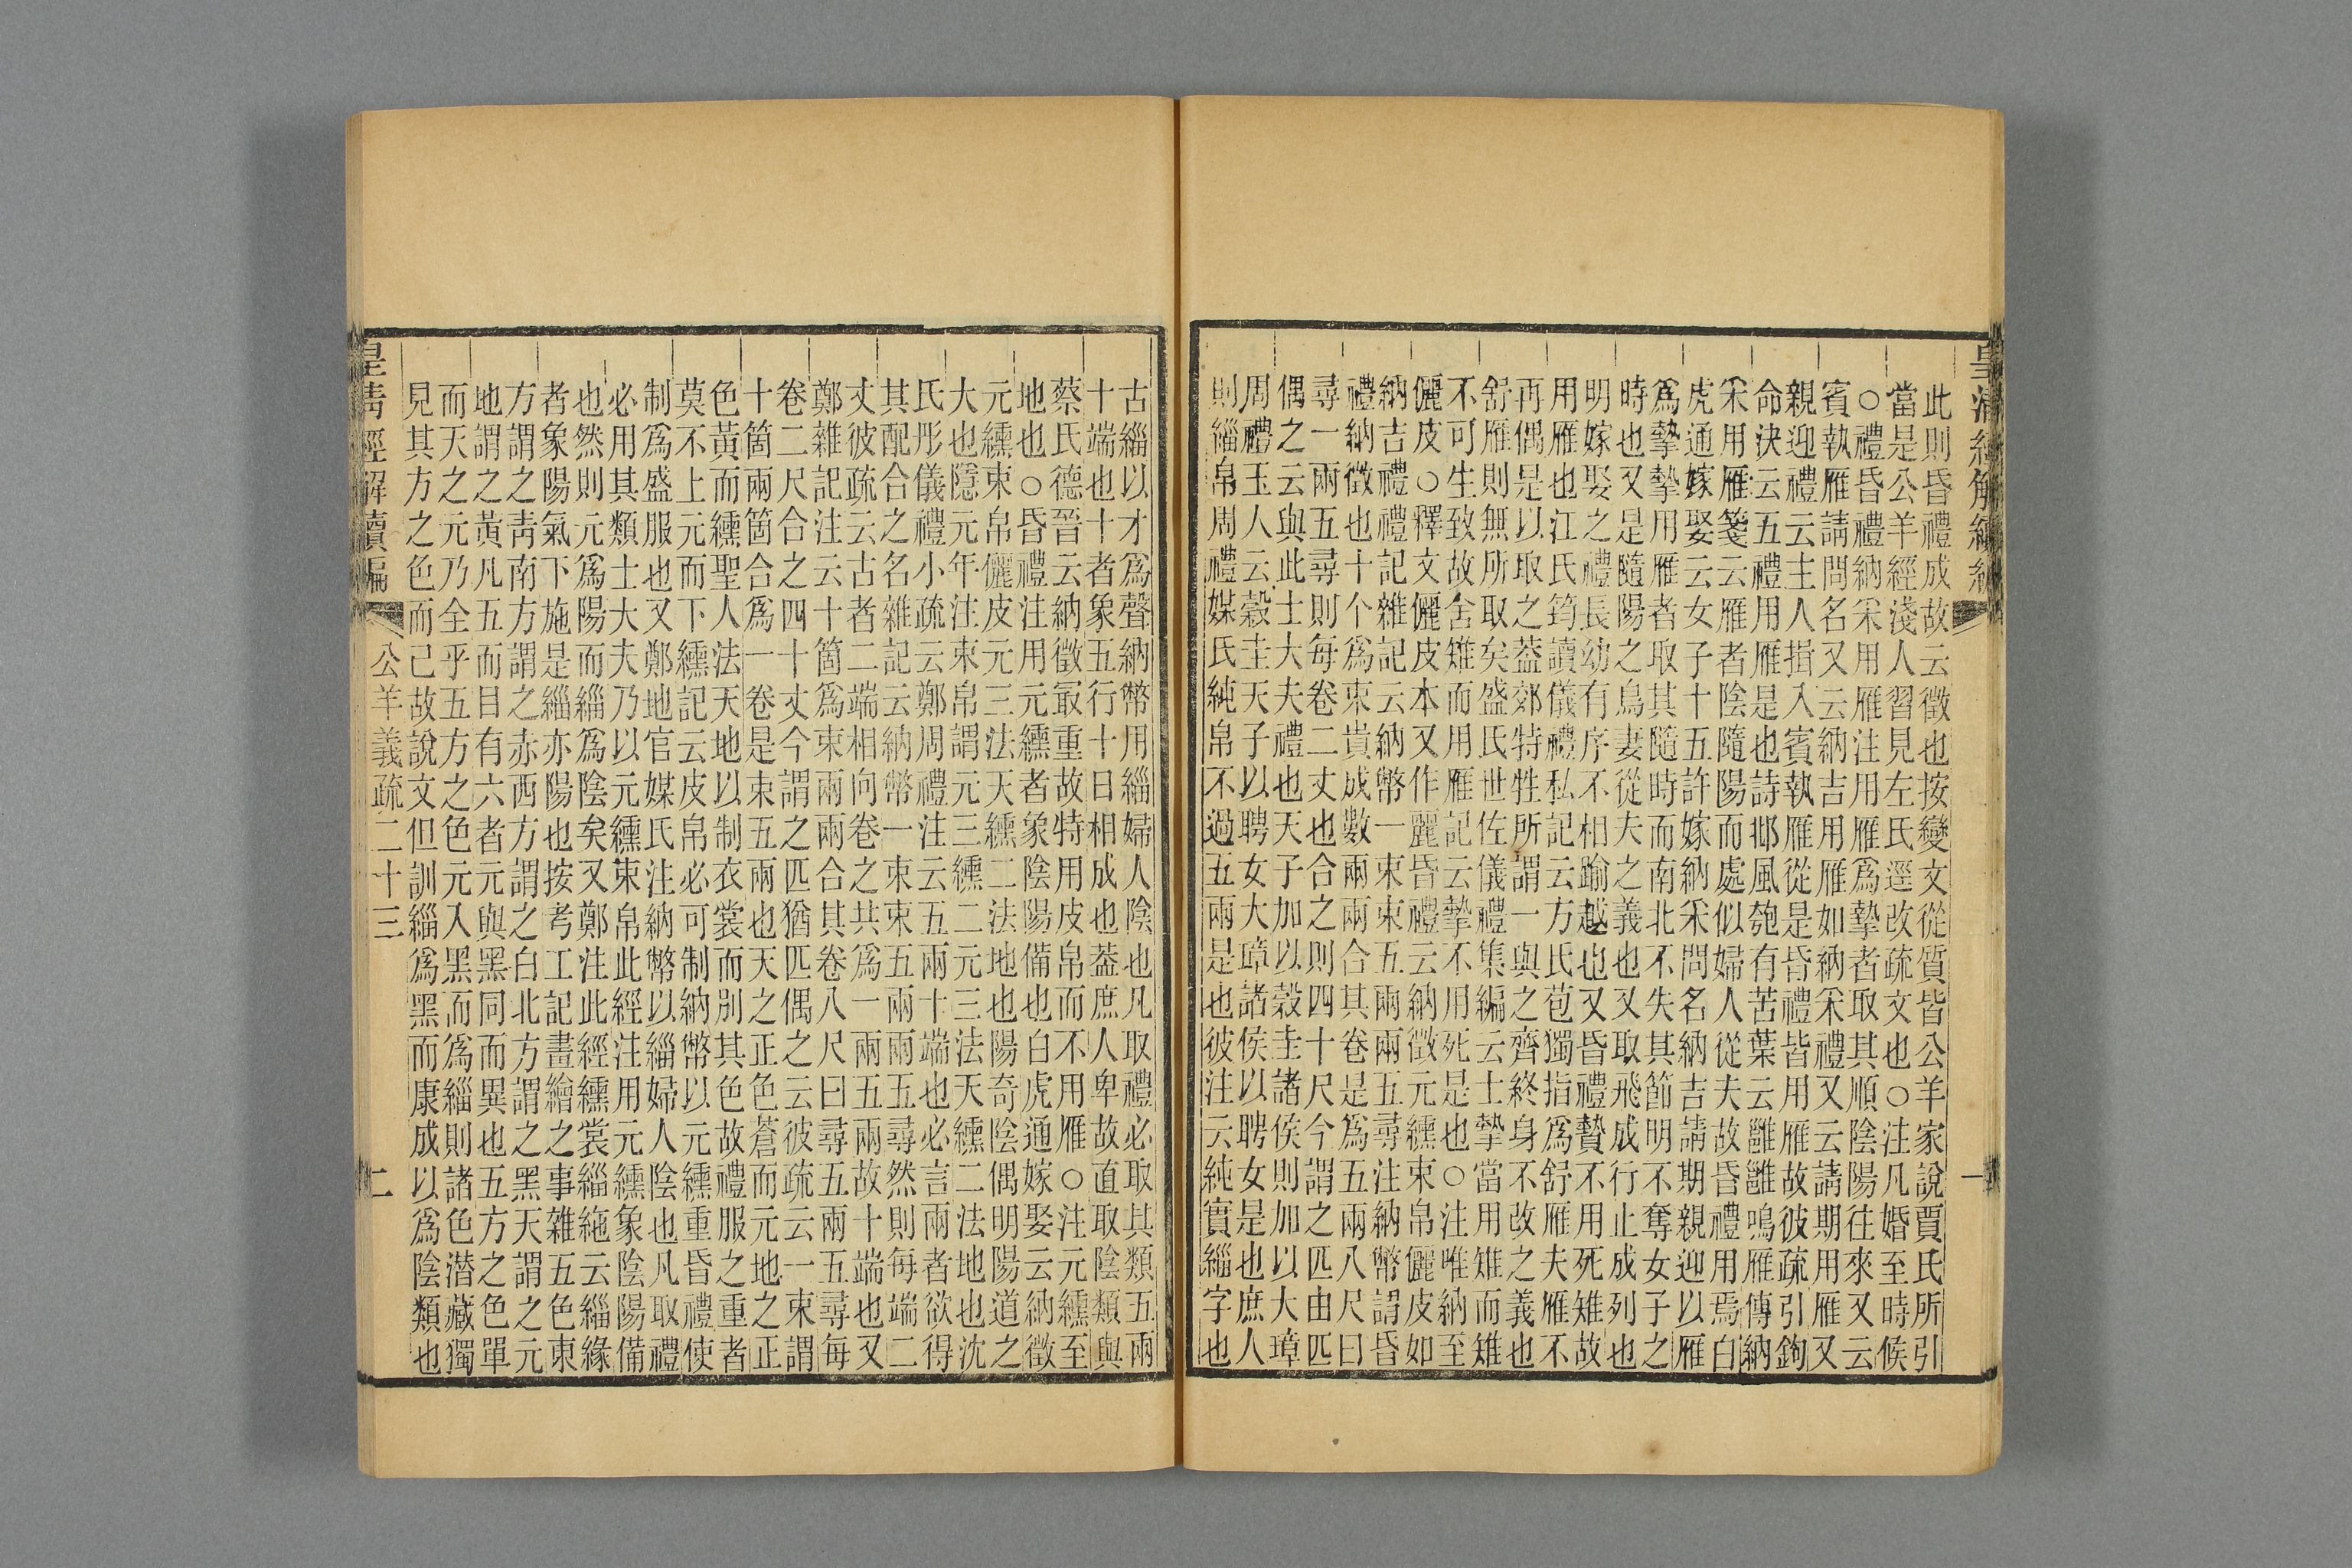 皇清經解續編
一
此則昏禮成故云徵也按變文從質皆公羊家說賈氏所引
當是公羊經淺人習見左氏逕改疏文也○注凡婚至時候
○禮昏禮納采用雁注用雁爲摯者取其順陰陽往來又云
賓執雁請問名又云納吉用雁如納采禮又云請期用雁又
親迎禮云主人揖入賓執雁從是昏禮皆用雁故彼疏引鉤
命決云五禮用雁是也詩邶風匏有苦葉云雝雝鳴雁傳納
采用雁箋云雁者陰隨陽而處似婦人從夫故昏禮用焉白
虎通嫁娶云女子十五許嫁納采問名納吉請期親迎以雁
爲摯摯用雁者取其隨時而南北不失其節明不奪女子之
時也又是隨陽之鳥妻從夫之義也又取飛成行止成列也
明嫁娶之禮長幼有序不相踰越也又昏禮贄不用死雉故
用雁也江氏筠讀儀禮私記云方氏苞獨指爲舒雁夫雁不
再偶是以取之葢郊特牲所謂一與之齊終身不改之義也
舒雁則無所取矣盛氏世佐儀禮集編云士摯當用雉而雉
不可生致故舍雉而用雁記云摯不用死是也○注唯納至
儷皮○釋文儷皮本又作麗昏禮云納徵元纁束帛儷皮如
納吉禮禮記雜記云納幣一束束五兩兩五尋注納幣謂昏
禮納徵也十个爲束貴成數兩兩合其卷是爲五兩八尺曰
尋一兩五尋則每卷二丈也合之則四十尺今謂之匹由匹
偶之云與此士大夫禮也天子加以穀圭諸侯則加以大璋
周禮玉人云穀圭天子以聘女大璋諸侯以聘女是也庶人
則緇帛周禮媒氏純帛不過五兩是也彼注云純實緇字也
古緇以才爲聲納幣用緇婦人陰也凡取禮必取其類五兩
十端也十者象五行十日相成也葢庶人卑故直取陰類與
蔡氏德晉云納徵最重故特用皮帛而不用雁○注元纁至
地也○昏禮注用元纁者象陰陽備也白虎通嫁娶云納徵
元纁束帛儷皮元三法天纁二法地也陽奇陰偶明陽道之
大也隱元年注束帛謂元三纁二元三法天纁二法地也沈
氏彤儀禮小疏云鄭周禮注云五兩十端也必言兩者欲得
其配合之名雜記云納幣一束束五兩兩五尋然則每端二
丈彼疏云古者二端相向卷之共爲一兩五兩故十端也又
鄭雜記注云十箇爲束兩兩合其卷八尺曰尋五兩五尋每
卷二尺合之四十丈今謂之匹猶匹偶之云彼疏云一束謂
十箇兩箇合爲一卷是束五兩也天之正色蒼而元地之正
色黃而纁聖人法天地以制衣裳而別其色故禮服之重者
莫不上元而下纁記云皮帛必可制納幣以元纁重昏禮使
制爲盛服也又鄭地官媒氏注納幣以緇婦人陰也凡取禮
必用其類士大夫乃以元纁束帛此經注用元纁象陰陽備
也然則元爲陽而緇爲陰矣又鄭注此經纁裳緇袘云緇緣
者象陽氣下施是緇亦陽也按考工記畫繪之事雜五色東
方謂之靑南方謂之赤西方謂之白北方謂之黑天謂之元
地謂之黃凡五而目有六者元與黑同而異也五方之色單
而天之元乃全乎五方之色元入黑而爲緇則諸色潛藏獨
見其方之色而已故說文但訓緇爲黑而康成以爲陰類也
皇清經解續編
公羊義疏二十三
二